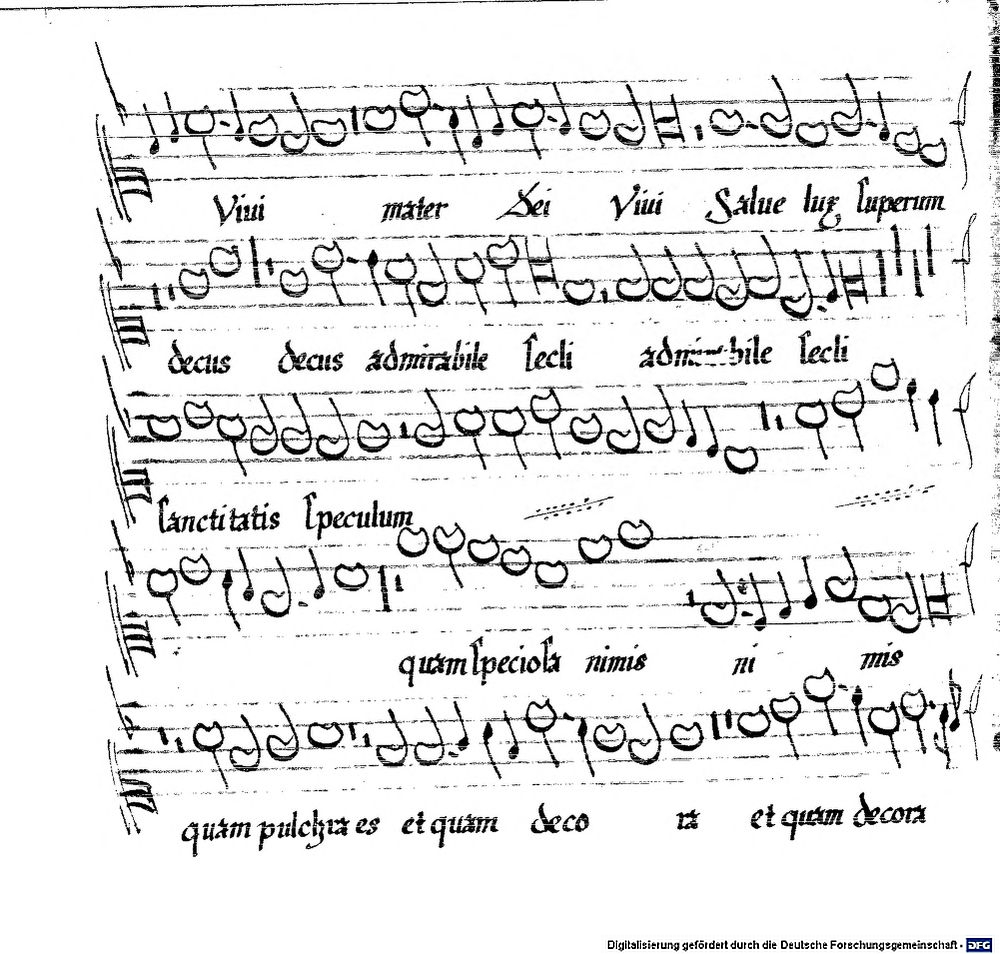 Viui mater Dei Viui Salue lux superum
decus decus admirabile secli admirabile secli
sanctitatis speculum
quam speciosa nimis ni mis
quam pulchra es et quam deco ra et quam decora
Digitalisierung gefördert durch die Deutsche Forschungsgemeinschaft - DFG